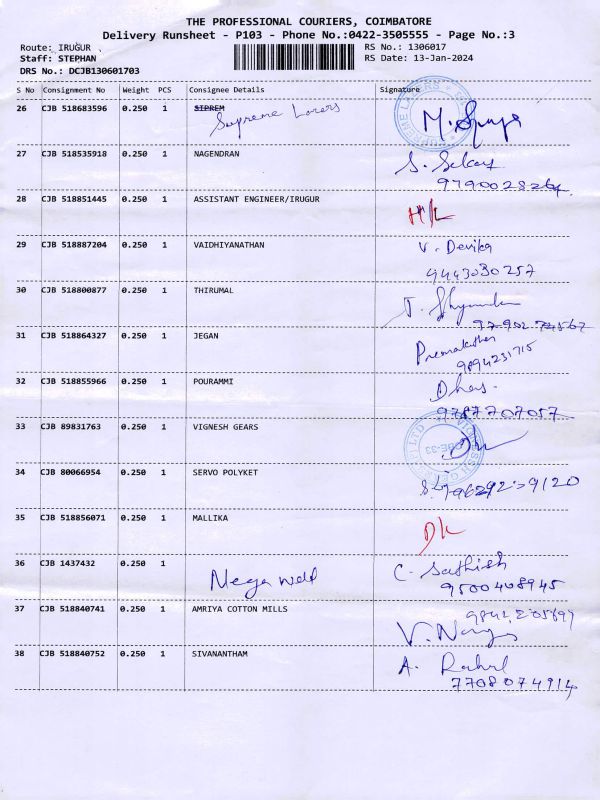 THE PROFESSIONAL COURIERS, COIMBATORE
Delivery Runsheet - P103 - Phone No.:0422-3505555 - Page No.:3
Route: IRUGUR
RS No.: 1306017
Staff: STEPHAN
RS Date: 13-Jan-2024
DRS No.: DCJB130601703
S No Consignment No Weight PCS Consignee Details Signature
26 CJB 518683596 0.250 1 SIPREM
Supreme
27 CJB 518535918 0.250 1 NAGENDRAN
28 CJB 518851445 0.250 1 ASSISTANT ENGINEER/IRUGUR
29 CJB 518887204 0.250 1 VAIDHIYANATHAN V. Devika
9443030257
30 CJB 518800877 0.250 1 THIRUMAL
31 CJB 518864327 0.250 1 JEGAN
9894231715
32 CJB 518855966 0.250 1 POURAMMI
9787707057
33 CJB 89831763 0.250 1 VIGNESH GEARS
34 CJB 80066954 0.250 1 SERVO POLYKET
35 CJB 518856071 0.250 1 MALLIKA
36 CJB 1437432 0.250 1 Mega Weld C. Sathish
9500408945
37 CJB 518840741 0.250 1 AMRIYA COTTON MILLS
38 CJB 518840752 0.250 1 SIVANANTHAM A. Rahul
7708074914